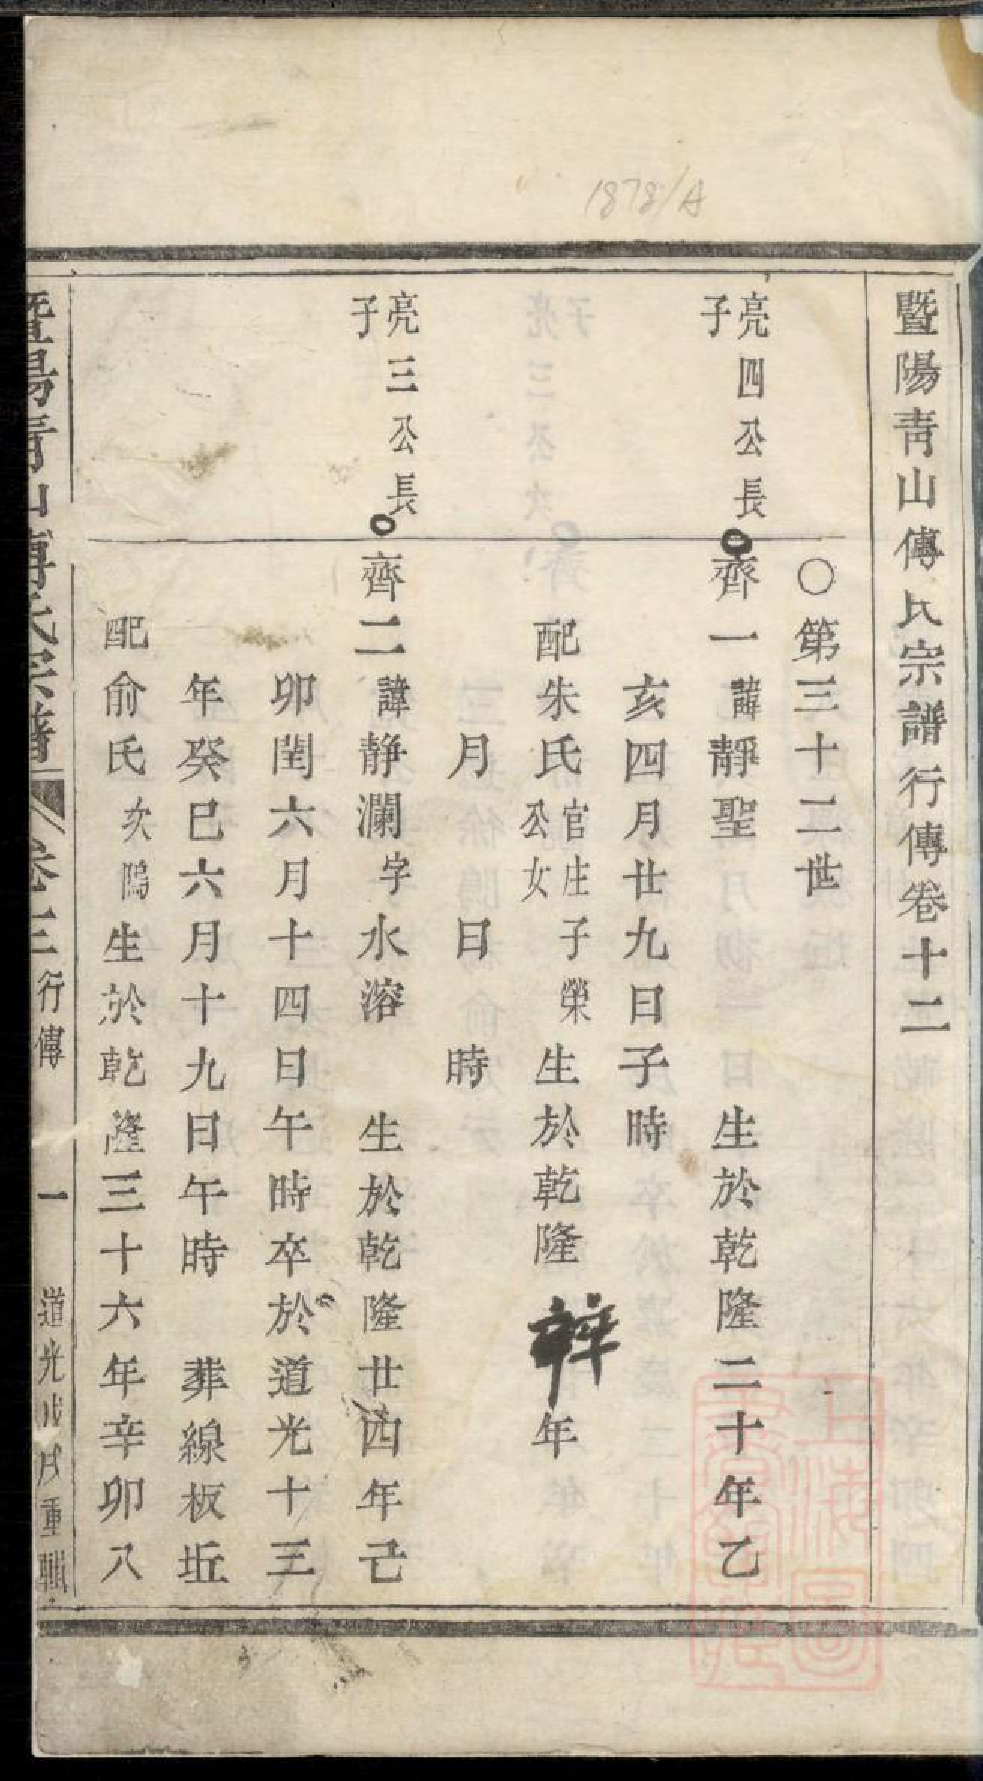 1878/A
暨陽青山傳氏宗譜行傳卷十二
〇第三十二世
亮四公長
子
齊一諱靜聖 生於乾隆二十年乙
亥四月廿九日子時
配朱氏官庄
公女
子榮生於乾隆 年
月 日 時
亮三公長
子
齊二諱静瀾字水溶 生於乾隆廿四年己
卯閏六月十四日午時卒於道光十三
年癸巳六月十九日午時 葬線板坵
配俞氏次隖生於乾隆三十六年辛卯八
暨陽青山傳氏宗譜 行傳 一 道光戊戌重輯
上海圖